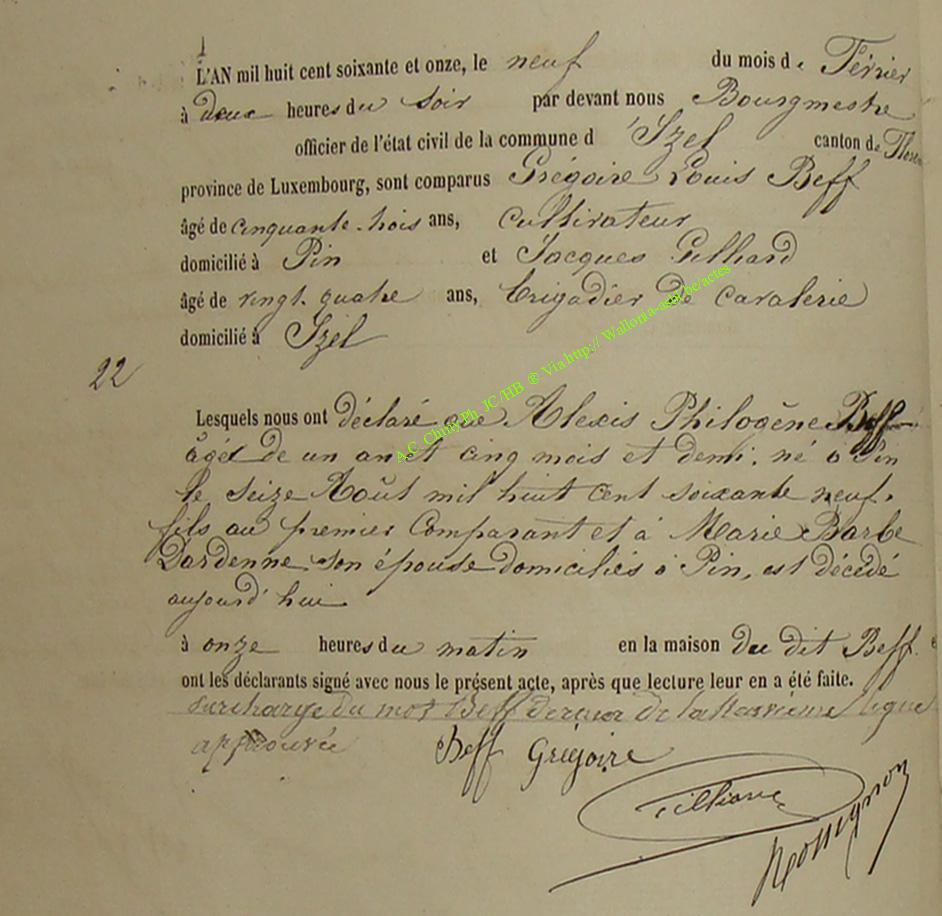 L'AN mil huit cent soixante et onze, le neuf du mois de Février
à deux heures du soir par devant nous Bourgmestre
officier de l'état civil de la commune d'Izel canton de Floren
province de Luxembourg, sont comparus Grégoire Louis Beff
âgé de cinquante-trois ans, cultivateur
domicilié à Pin et Jacques Gilliard
âgé de vingt-quatre ans, brigadier de cavalerie
domicilié à Izel
22
Lesquels nous ont déclaré que Alexis Philogène Beff
âgé de un an et cinq mois et demi, né à Pin
le seize Août mil huit cent soixante neuf,
fils au premier Comparant et à Marie Barbe
Dardenne son épouse domiciliés à Pin, est décédé
aujourd'hui
à onze heures du matin en la maison du dit Beff. e
ont les déclarants signé avec nous le présent acte, après que lecture leur en a été faite.
Surcharge du mot Beff de la ligne
approuvée Beff Grégoire
Gilliard
Rossignon
A.C. Chiny Ph JC/HB ® Via http:// Wallonia-asbl.be/actes